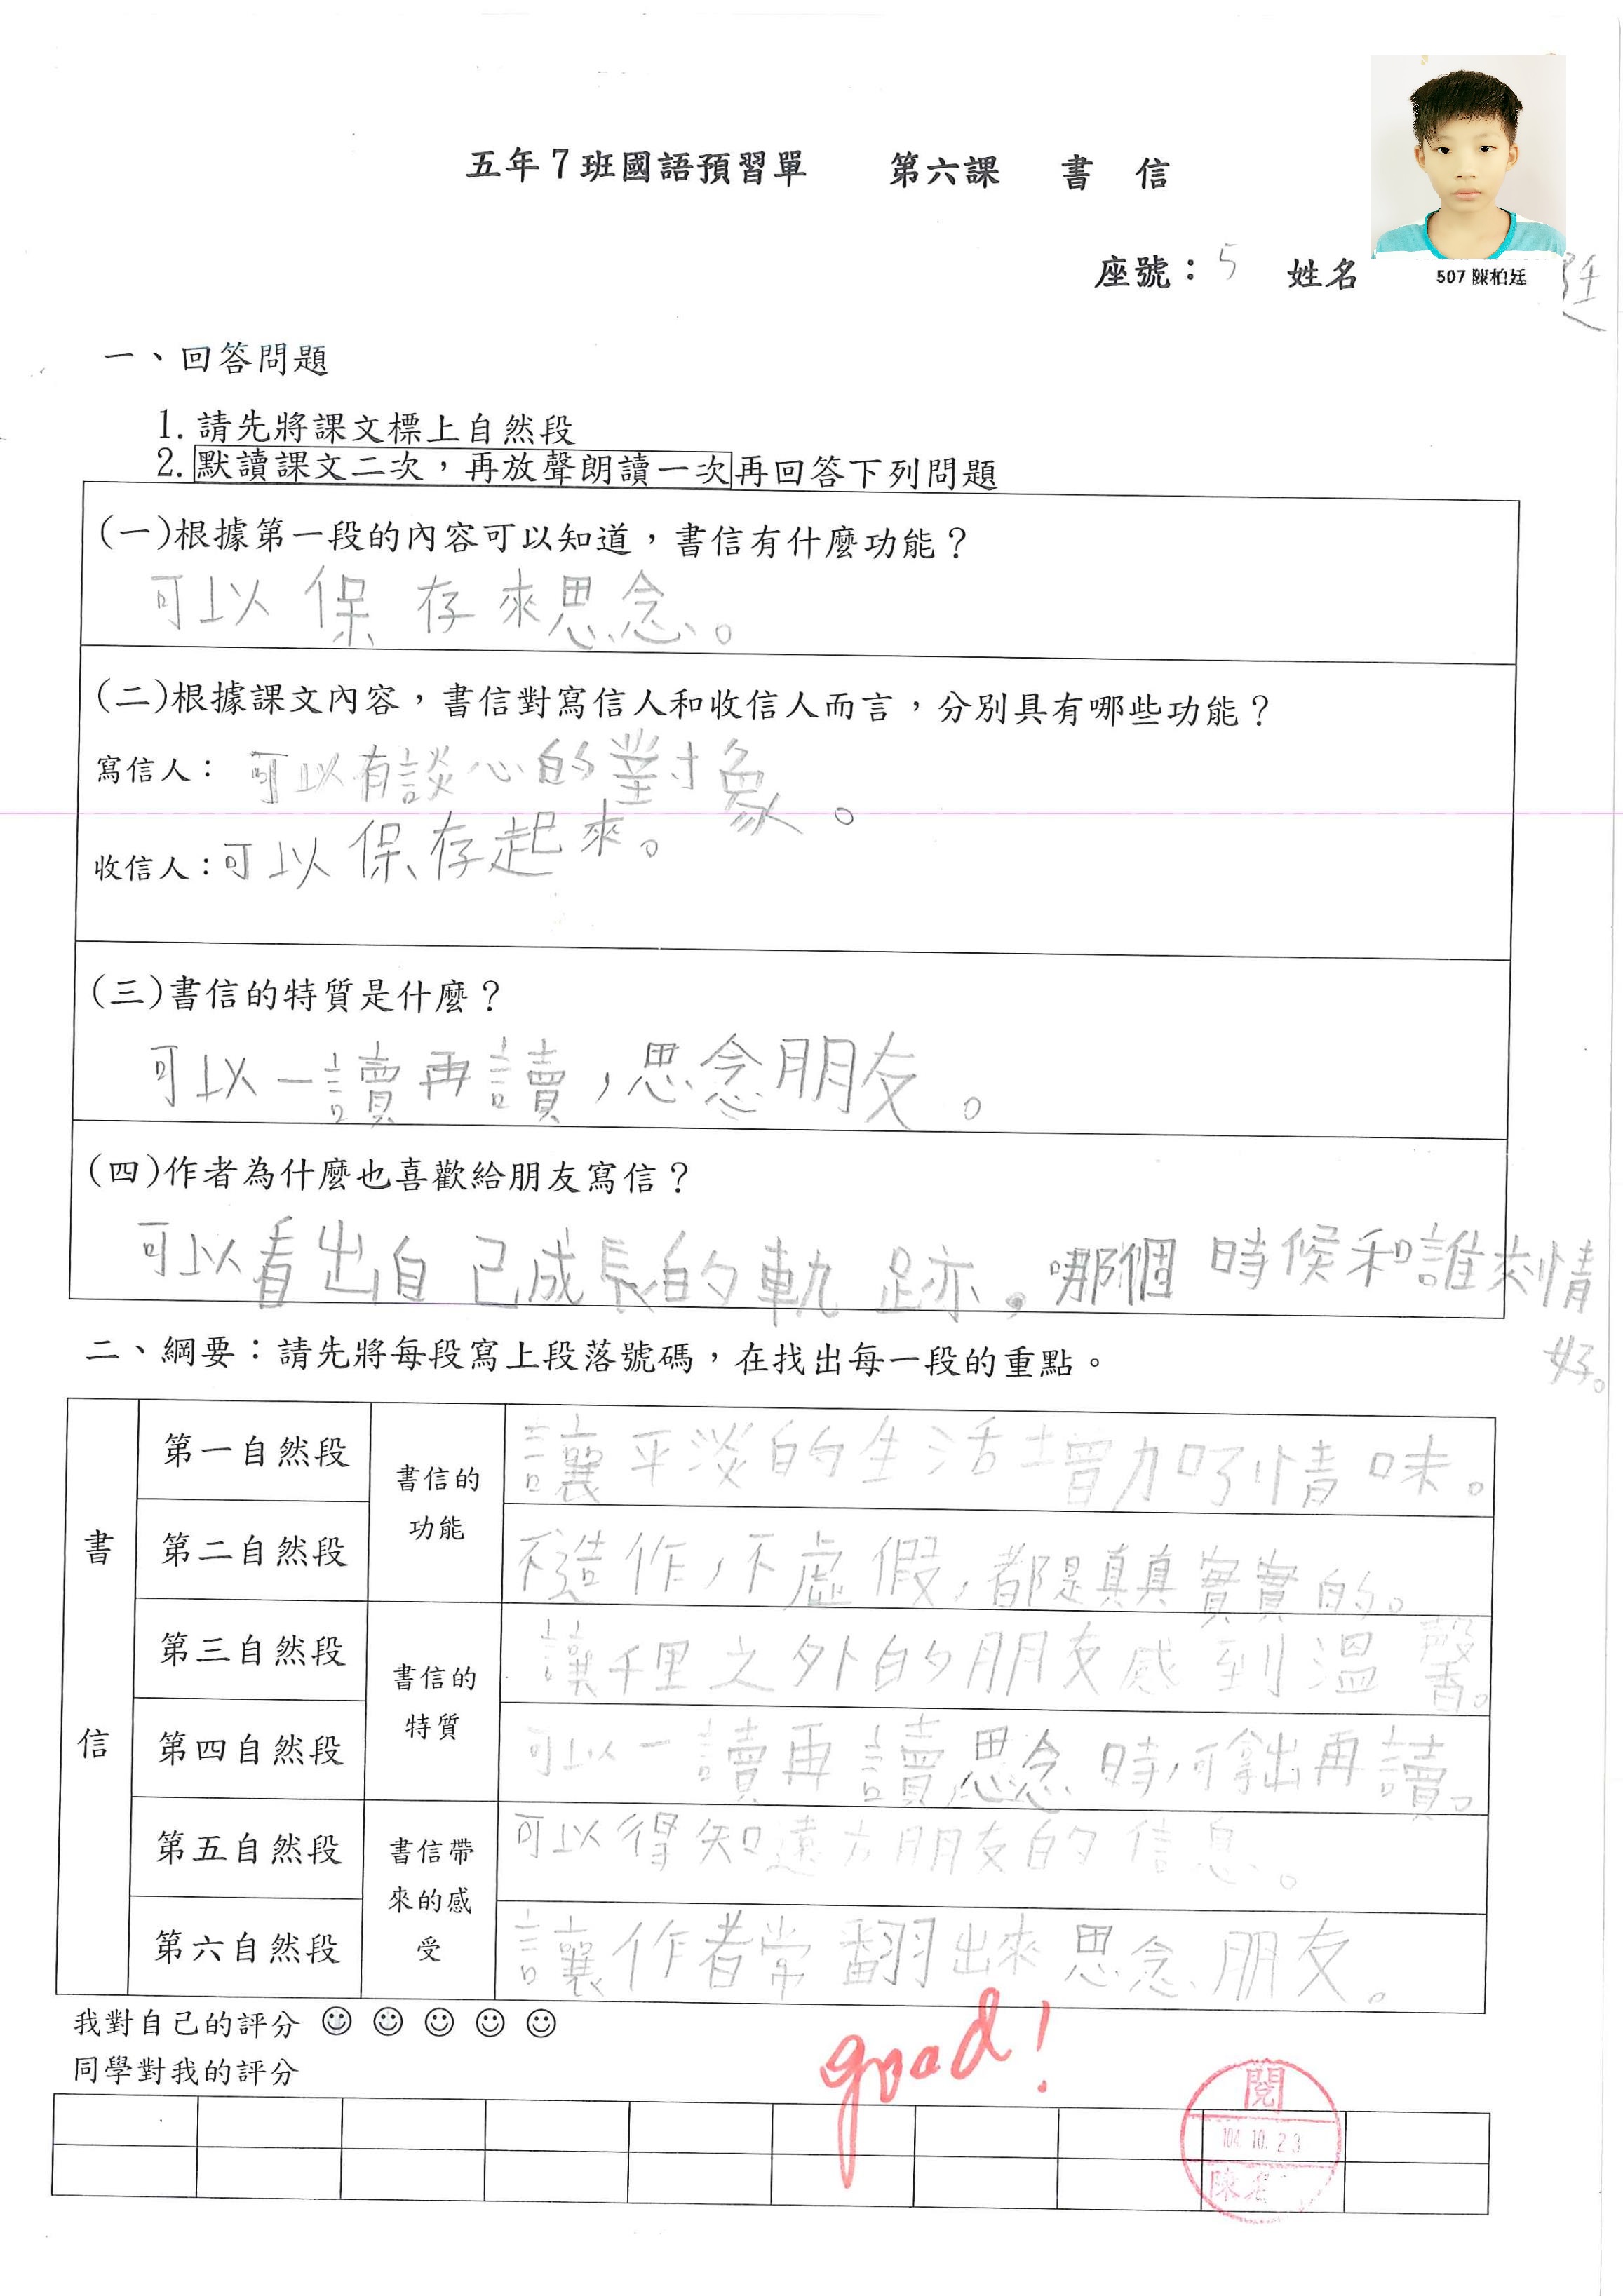 五年7班國語預習單 第六課 書 信
座號：5 姓名
507 陳柏廷
廷
一、回答問題
1.請先將課文標上自然段
2.默讀課文二次，再放聲朗讀一次再回答下列問題
(一)根據第一段的內容可以知道，書信有什麼功能？
可以保存來思念。
(二)根據課文內容，書信對寫信人和收信人而言，分別具有哪些功能？
寫信人：可以有談心的對象。
收信人：可以保存起來。
(三)書信的特質是什麼？
可以一讀再讀，思念朋友。
(四)作者為什麼也喜歡給朋友寫信？
可以看出自己成長的軌跡。哪個時候和誰交情
好。
二、綱要：請先將每段寫上段落號碼，在找出每一段的重點。
書信
第一自然段 書信的功能 讓平淡的生活增加了情味。
第二自然段 不造作，不虛假，都是真真實實的。
第三自然段 書信的特質 讓千里之外的朋友感到溫馨。
第四自然段 可以一讀再讀，思念時，可拿出再讀。
第五自然段 書信帶來的感受 可以得知遠方朋友的信息。
第六自然段 讓作者常翻出來思念朋友。
我對自己的評分
同學對我的評分
good!
閱
104.10.23
陳